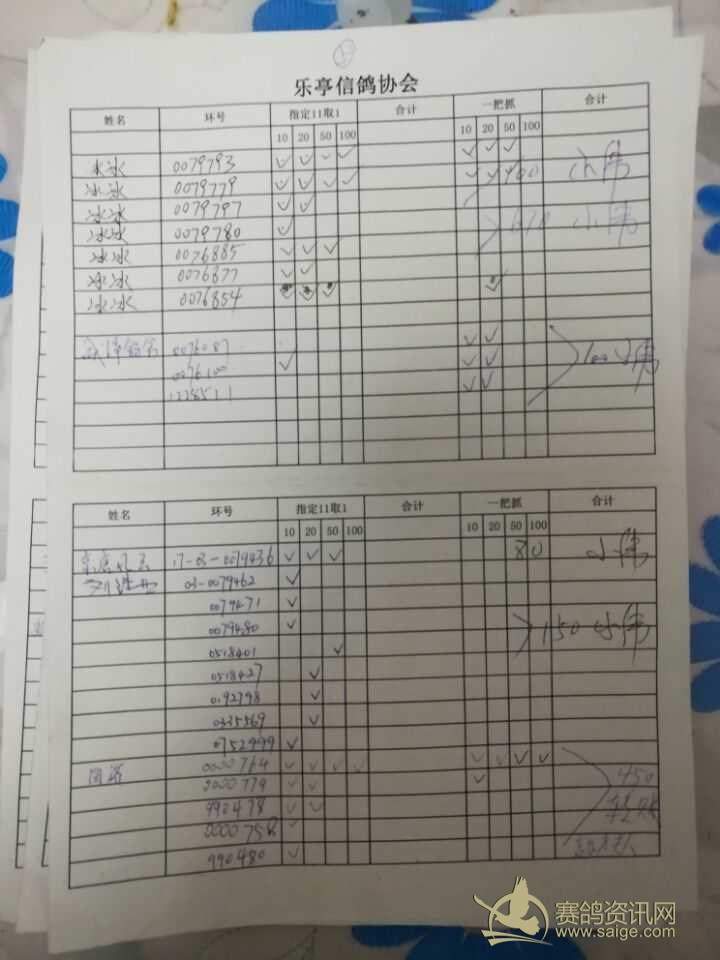 乐亭信鸽协会
姓名 环号 指定11取1 合计 一把抓 合计
10 20 50 100 10 20 50 100
冰冰 0079793 ✓ ✓ ✓ ✓ ✓ ✓ ✓
冰冰 0079779 ✓ ✓ ✓ ✓ ✓ ✓ 小伟
冰冰 0079797 ✓ ✓
冰冰 0079780 ✓ 小伟
冰冰 0076885 ✓ ✓ ✓
冰冰 0076877 ✓ ✓
冰冰 0076854 ✓ ✓ ✓ ✓
0076087 ✓ ✓
0076100 ✓ ✓ ✓ 100 小伟
✓ ✓
姓名 环号 指定11取1 合计 一把抓 合计
10 20 50 100 10 20 50 100
17-03-0079436 ✓ ✓ ✓ 80 小伟
03-0079462 ✓
0079471 ✓
0079480 ✓ 150 小伟
0518401 ✓
0518427 ✓
0192798 ✓
0335569 ✓
0752999 ✓
0000764 ✓ ✓ ✓ ✓ ✓ ✓ ✓ ✓
0000779 ✓ ✓ ✓ 450
990478 ✓ ✓
0000758 ✓
990480 ✓
赛鸽资讯网
www.saige.com